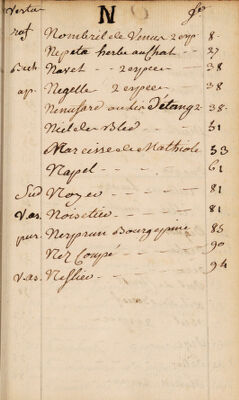 Vertu N fos
raf Nombril de Venus 2 esp 8
Nepeta herbe au Chat 27
Navet 2 espece 38
ap. Nigelle 2 espece 38
Nenufare ou lis Détang 2 38
Niele du Bled 51
Narcisse de Mathiole 53
Napel 61
Sud Noyer 81
Vas. Noisetier 81
pur. Nerprun Bourgepine 85
Nez Coupé 90
Vas. Neflier 94